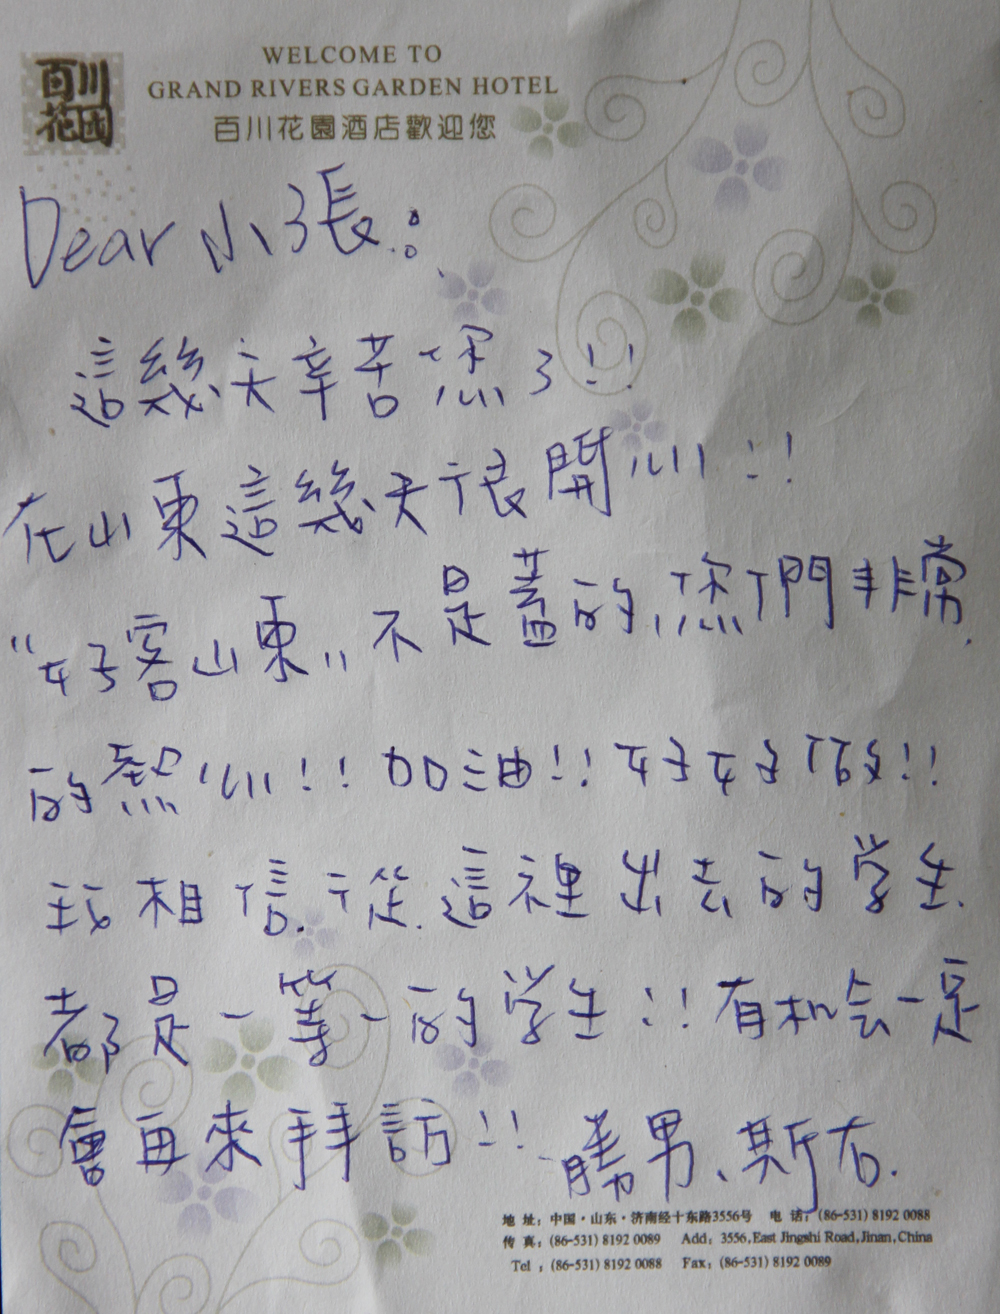 百川
花园
WELCOME TO
GRAND RIVERS GARDEN HOTEL
百川花園酒店歡迎您
Dear 小張:
這幾天辛苦您了!!
在山東這幾天很開心!!
"好客山東"不是蓋的,您們非常
的熱心!!加油!!好好做!!
我相信,從這裡出去的学生
都是一等一的学生!!有机会一定
會再來拜訪!! 勝男、斯右.
地 址: 中国·山东·济南经十东路3556号 电 话: (86-531) 8192 0088
传 真: (86-531) 8192 0089 Add: 3556, East Jingshi Road, Jinan, China
Tel : (86-531) 8192 0088 Fax: (86-531) 8192 0089